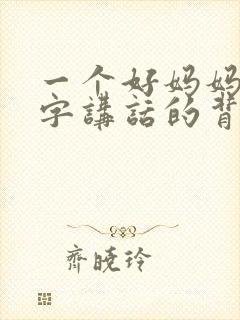 一个好妈妈
字講話的背
齊曉玲